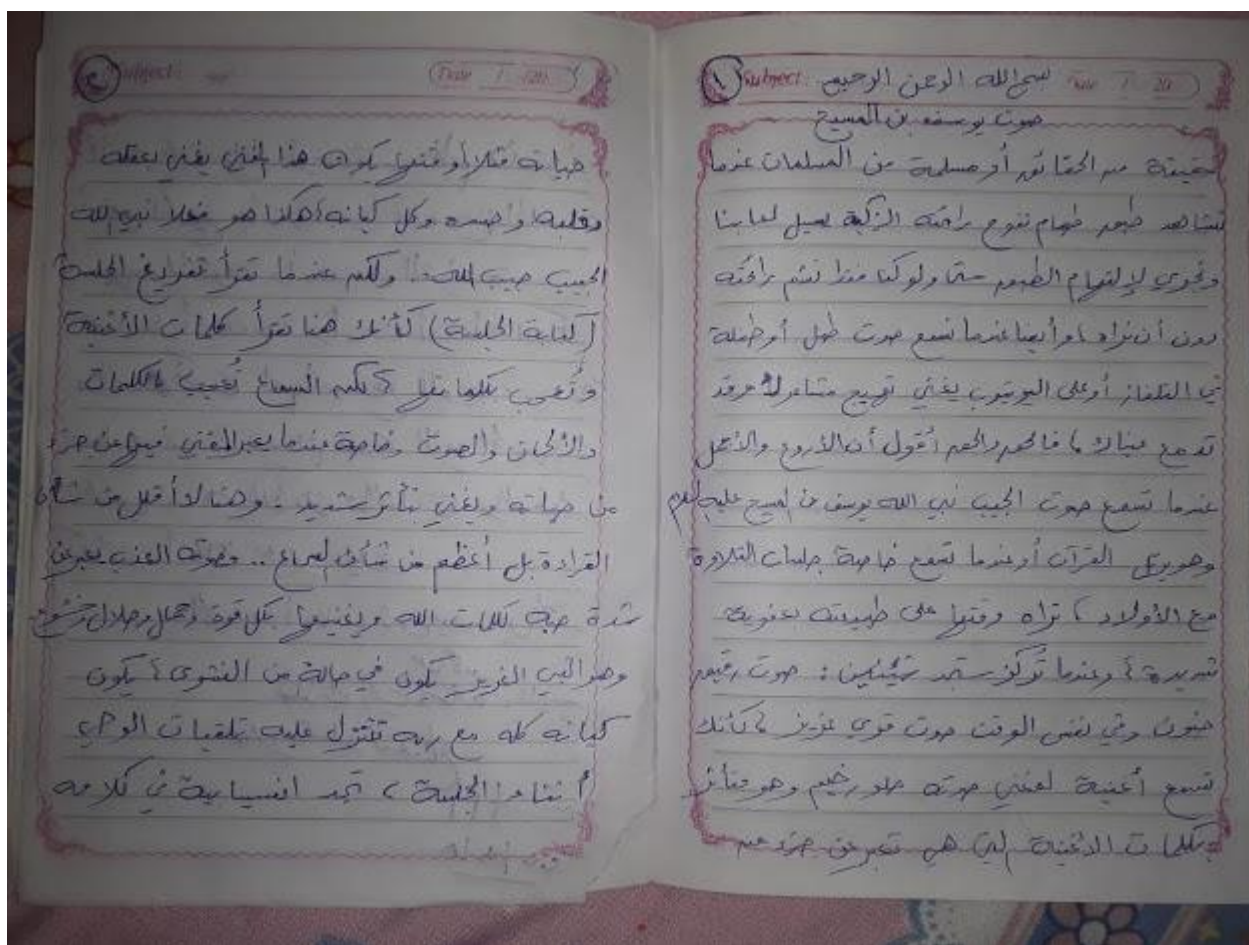 ١ Subject: بسم الله الرحمن الرحيم Date / / 20
صوت يوسف بن المسيح
حقيقة من الحقائق أو مسلمة من المسلمات عندما
نشاهد طبق طعام تفوح رائحته الزكية يسيل لعابنا
ونجري لإلتهام الطبق حتى ولو كنا فقط نشم رائحته
دون أن نراه، وأيضا عندما نسمع صوت طبل أو طبلة
في التلفاز أو على اليوتيوب يغني تهيج مشاعرك وقد
تدمع عيناك، أقول أن الأروع والأجمل
عندما تسمع صوت الحبيب نبي الله يوسف بن المسيح عليه السلام
وهو يرتل القرآن أو عندما تسمع خاصة جلسات التلاوة
مع الأولاد، تراه وقتها على طبيعته بعفوية
شديدة، وعندما تركز ستجد شيئين: صوت رقيق
حنون وفي نفس الوقت صوت قوي عزيز، كأنك
تسمع أغنية لمغني صوته حلو رخيم وهو متأثر
بكلمات الأغنية التي هي تعبر عن جزء من
٢ Subject: Date / / 20
حياته مثلا أو وقتها يكون هذا المغني يغني بعقله
وقلبه وأحسه وكل كيانه، هكذا هو فعلا نبي الله
الحبيب حبيب الله.. ولكن عندما تقرأ تفريغ الجلسة
(كتابة الجلسة) كأنك هنا تقرأ كلمات الأغنية
وتُعجب بكلماتها، لكن السماع تُعجب بالكلمات
والألحان والصوت وخاصة عندما يعبر المغني فيها عن جزء
من حياته ويغني بتأثر شديد. وهنا لا أقلل من شأن
القراءة بل أعظم من شأن السماع.. وصوته العذب يعبر عن
شدة حبه لكلمات الله ويغنيها بكل قوة وجمال وجلال وخشوع
وهو النبي العزيز يكون في حالة من النشوى، يكون
كيانه كله مع ربه تتنزل عليه تلقيات الوحي
أثناء الجلسة، تجد انسيابية في كلامه